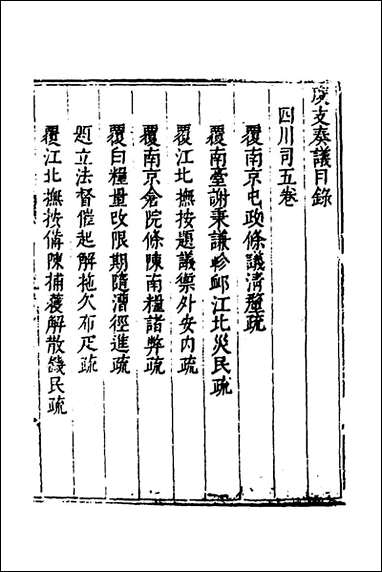 度支奏議目錄
四川司五卷
覆南京屯政條議清釐疏
覆南臺謝秉謙軫邮江北災民疏
覆江北撫按題議禦外安内疏
覆南京倉院條陳南糧諸弊疏
覆白糧量改限期隨漕徑進疏
題立法督催起解拖欠布疋疏
覆江北撫按俻陳捕蝗解散饑民疏